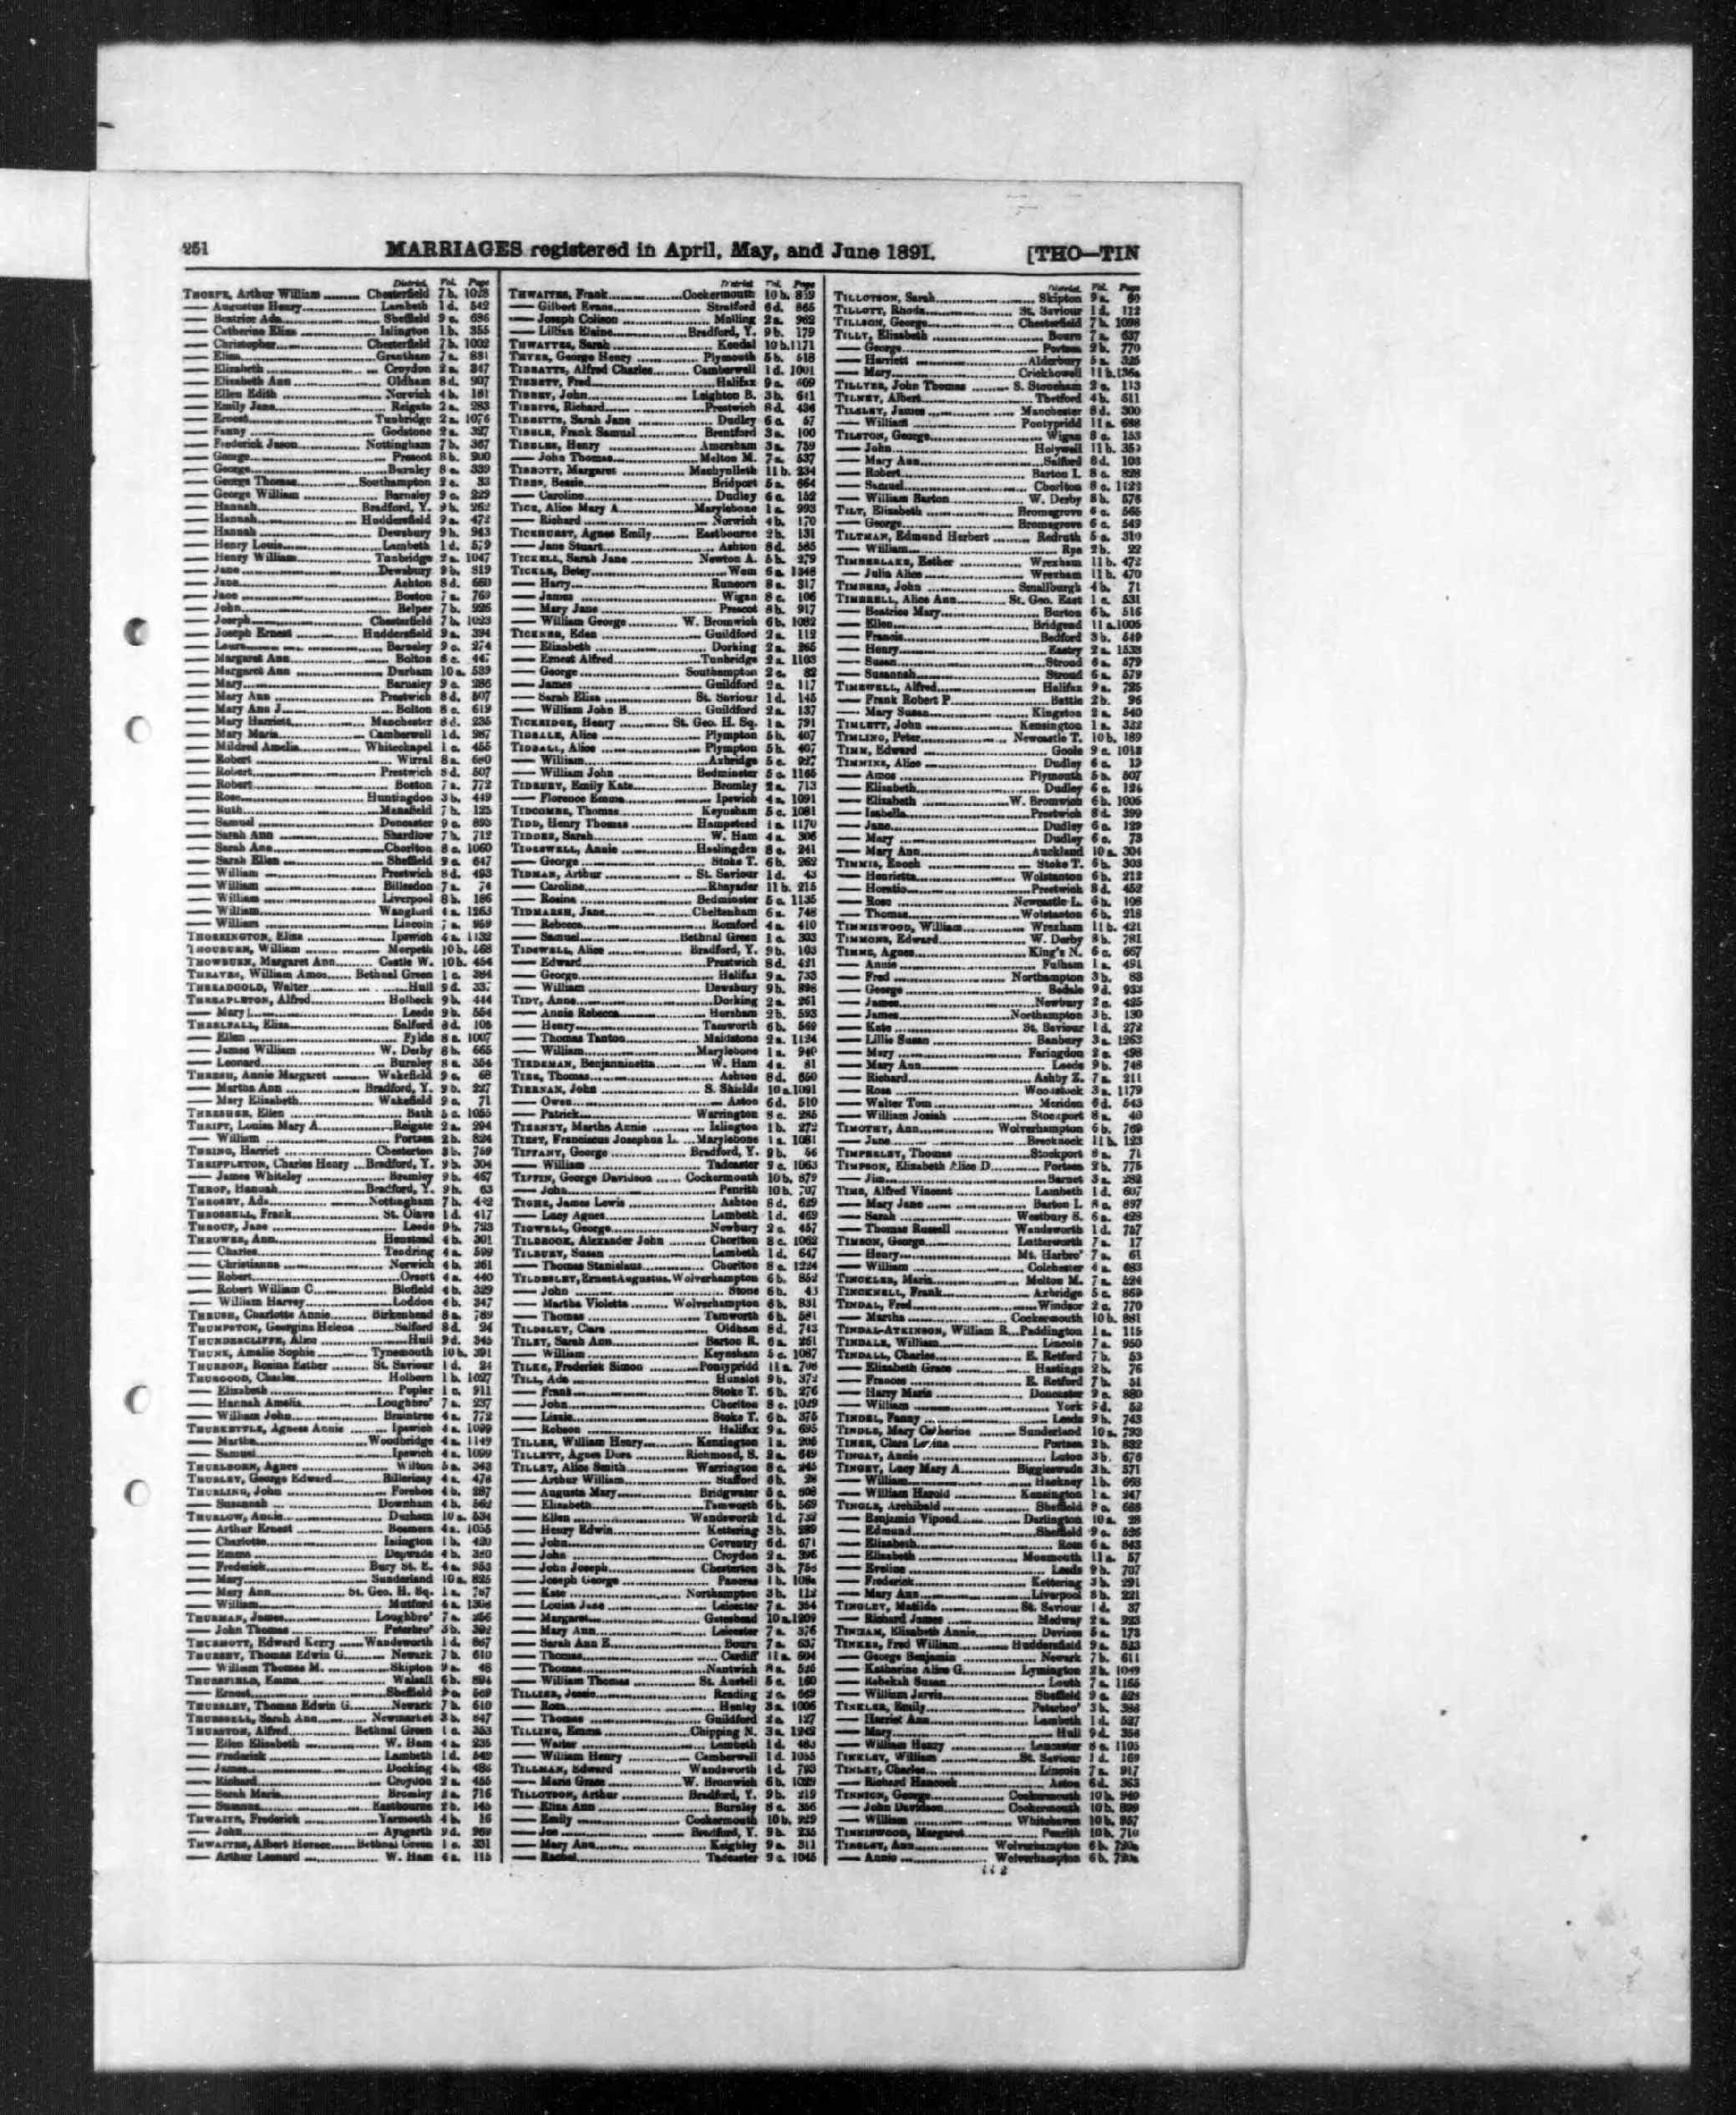 251 MARRIAGES registered in April, May, and June 1891. [THO—TIN
District. Vol. Page
THORPE, Arthur William Chesterfield 7 b. 1028
— Augustus Henry Lambeth 1 d. 542
— Beatrice Ada Sheffield 9 c. 686
— Catherine Eliza Islington 1 b. 355
— Christopher Chesterfield 7 b. 1002
— Eliza Grantham 7 a. 881
— Elizabeth Croydon 2 a. 347
— Elizabeth Ann Oldham 8 d. 907
— Ellen Edith Norwich 4 b. 181
— Emily Jane Reigate 2 a. 283
— Ernest Tunbridge 2 a. 1076
— Fanny Godstone 2 a. 327
— Frederick Jason Nottingham 7 b. 367
— George Prescot 8 b. 900
— George Burnley 8 e. 339
— George Thomas Southampton 2 c. 33
— George William Barnsley 9 c. 229
— Hannah Bradford, Y. 9 b. 262
— Hannah Huddersfield 9 a. 472
— Hannah Dewsbury 9 b. 943
— Henry Louis Lambeth 1 d. 579
— Henry William Tunbridge 2 a. 1047
— Jane Dewsbury 9 b. 819
— Jane Ashton 8 d. 660
— Jane Boston 7 a. 769
— John Belper 7 b. 926
— Joseph Chesterfield 7 b. 1023
— Joseph Ernest Huddersfield 9 a. 394
— Laura Barnsley 9 c. 274
— Margaret Ann Bolton 8 c. 447
— Margaret Ann Durham 10 a. 589
— Mary Barnsley 9 c. 286
— Mary Ann Prestwich 8 d. 507
— Mary Ann J. Bolton 8 c. 619
— Mary Harriett Manchester 8 d. 235
— Mary Maria Camberwell 1 d. 987
— Mildred Amelia Whitechapel 1 c. 455
— Robert Wirral 8 a. 680
— Robert Prestwich 8 d. 507
— Robert Boston 7 a. 772
— Rose Huntingdon 3 b. 449
— Ruth Mansfield 7 b. 125
— Samuel Doncaster 9 c. 893
— Sarah Ann Shardlow 7 b. 712
— Sarah Ann Chorlton 8 c. 1060
— Sarah Ellen Sheffield 9 c. 647
— William Prestwich 8 d. 493
— William Billesdon 7 a. 74
— William Liverpool 8 b. 186
— William Wangford 4 a. 1263
— William Lincoln 7 a. 959
THORRINGTON, Eliza Ipswich 4 a. 1132
THOUBURN, William Morpeth 10 b. 468
THOWBURN, Margaret Ann Castle W. 10 b. 454
THRAVES, William Amos Bethnal Green 1 c. 384
THREADGOLD, Walter Hull 9 d. 337
THREAPLETON, Alfred Holbeck 9 b. 444
— Mary Leeds 9 b. 554
THRELFALL, Eliza Salford 8 d. 105
— Ellen Fylde 8 e. 1007
— James William W. Derby 8 b. 665
— Leonard Burnley 8 e. 354
THRESH, Annie Margaret Wakefield 9 c. 68
— Martha Ann Bradford, Y. 9 b. 227
— Mary Elizabeth Wakefield 9 c. 71
THRESHER, Ellen Bath 5 c. 1055
THRIFT, Louisa Mary A. Reigate 2 a. 294
— William Portsea 2 b. 824
THRING, Harriet Chesterton 3 b. 759
THRIPPLETON, Charles Henry Bradford, Y. 9 b. 304
— James Whiteley Bramley 9 b. 467
THROP, Hannah Bradford, Y. 9 b. 63
THROSBY, Ada Nottingham 7 b. 442
THROSSELL, Frank St. Olave 1 d. 417
THROUP, Jane Leeds 9 b. 723
THROWER, Ann Henstead 4 b. 301
— Charles Tendring 4 a. 599
— Christianna Norwich 4 b. 261
— Robert Orsett 4 a. 440
— Robert William C. Blofield 4 b. 329
— William Harvey Loddon 4 b. 347
THRUSH, Charlotte Annie Birkenhead 8 a. 789
THUMPSTON, Georgina Helena Salford 8 d. 24
THUNDERCLIFFE, Alice Hull 9 d. 345
THUNE, Amalie Sophie Tynemouth 10 b. 391
THURBON, Rosina Esther St. Saviour 1 d. 24
THURGOOD, Charles Holborn 1 b. 1027
— Elizabeth Poplar 1 c. 911
— Hannah Amelia Loughbro' 7 a. 237
— William John Braintree 4 a. 772
THURKETTLE, Agness Annie Ipswich 4 a. 1099
— Martha Woodbridge 4 a. 1149
— Samuel Ipswich 4 a. 1099
THURLBORN, Agnes Wilton 5 a. 343
THURLEY, George Edward Billericay 4 a. 478
THURLING, John Forehoe 4 b. 287
— Susannah Downham 4 b. 562
THURLOW, Annie Durham 10 a. 534
— Arthur Ernest Bosmere 4 a. 1055
— Charlotte Islington 1 b. 420
— Emma Depwade 4 b. 380
— Frederick Bury St. E. 4 a. 953
— Mary Sunderland 10 a. 825
— Mary Ann St. Geo. H. Sq. 1 a. 767
— William Mutford 4 a. 1308
THURMAN, James Loughbro' 7 a. 256
— John Thomas Peterbro' 3 b. 392
THURMOTT, Edward Kerry Wandsworth 1 d. 867
THURSBY, Thomas Edwin G. Newark 7 b. 610
— William Thomas M. Skipton 9 a. 46
THURSFIELD, Emma Walsall 6 b. 894
— Ernest Sheffield 9 c. 569
THURSLEY, Thomas Edwin G. Newark 7 b. 610
THURSSELL, Sarah Ann Newmarket 3 b. 847
THURSTON, Alfred Bethnal Green 1 c. 353
— Ellen Elizabeth W. Ham 4 a. 235
— Frederick Lambeth 1 d. 549
— James Docking 4 b. 485
— Richard Croydon 2 a. 455
— Sarah Maria Bromley 2 a. 716
— Susanna Eastbourne 2 b. 145
THWAITE, Frederick Yarmouth 4 b. 16
— John Aysgarth 9 d. 969
THWAITES, Albert Horace Bethnal Green 1 c. 331
— Arthur Leonard W. Ham 4 a. 115
District Vol. Page
THWAITES, Frank Cockermouth 10 b. 859
— Gilbert Evans Stratford 6 d. 865
— Joseph Colison Malling 2 a. 962
— Lillian Elaine Bradford, Y. 9 b. 179
THWAYTES, Sarah Kendal 10 b. 1171
THYER, George Henry Plymouth 5 b. 518
TIBBATTS, Alfred Charles Camberwell 1 d. 1001
TIBBETT, Fred Halifax 9 a. 609
TIBBEY, John Leighton B. 3 b. 611
TIBBITS, Richard Prestwich 8 d. 436
TIBBETTS, Sarah Jane Dudley 6 c. 57
TIBBLE, Frank Samuel Brentford 3 a. 100
TIBBLES, Henry Amersham 3 a. 759
— John Thomas Melton M. 7 a. 537
TIBBOTT, Margaret Machynlleth 11 b. 234
TIBBS, Bessie Bridport 5 a. 664
— Caroline Dudley 6 c. 152
TICE, Alice Mary A. Marylebone 1 a. 993
— Richard Norwich 4 b. 170
TICEHURST, Agnes Emily Eastbourne 2 b. 131
— Jane Stuart Ashton 8 d. 565
TICKELL, Sarah Jane Newton A. 5 b. 279
TICKLE, Betsy Wem 6 a. 1348
— Harry Runcorn 8 a. 317
— James Wigan 8 c. 106
— Mary Jane Prescot 8 b. 917
— William George W. Bromwich 6 b. 1082
TICKNER, Eden Guildford 2 a. 112
— Elizabeth Dorking 2 a. 265
— Ernest Alfred Tunbridge 2 a. 1103
— George Southampton 2 c. 82
— James Guildford 2 a. 117
— Sarah Eliza St. Saviour 1 d. 145
— William John B. Guildford 2 a. 137
TICKRIDGE, Henry St. Geo. H. Sq. 1 a. 791
TIDBALE, Alice Plympton 5 b. 407
TIDBALL, Alice Plympton 5 b. 407
— William Axbridge 5 c. 927
— William John Bedminster 5 c. 1165
TIDBURY, Emily Kate Bromley 2 a. 713
— Florence Emma Ipswich 4 a. 1091
TIDCOMBE, Thomas Keynsham 5 c. 1081
TIDD, Henry Thomas Hampstead 1 a. 1170
TIDDER, Sarah W. Ham 4 a. 306
TIDESWELL, Annie Haslingden 8 e. 241
— George Stoke T. 6 b. 262
TIDMAN, Arthur St. Saviour 1 d. 43
— Caroline Rhayader 11 b. 215
— Rosina Bedminster 5 c. 1135
TIDMARSH, Jane Cheltenham 6 a. 748
— Rebecca Romford 4 a. 410
— Samuel Bethnal Green 1 c. 303
TIDSWELL, Alice Bradford, Y. 9 b. 103
— Edward Prestwich 8 d. 421
— George Halifax 9 a. 733
— William Dewsbury 9 b. 898
TIDY, Anne Dorking 2 a. 261
— Annie Rebecca Horsham 2 b. 593
— Henry Tamworth 6 b. 569
— Thomas Tanton Maidstone 2 a. 1124
— William Marylebone 1 a. 940
TIEDEMAN, Benjanninetta W. Ham 4 a. 81
TIER, Thomas Ashton 8 d. 650
TIERNAN, John S. Shields 10 a. 1091
— Owen Aston 6 d. 510
— Patrick Warrington 8 c. 285
TIERNEY, Martha Annie Islington 1 b. 272
TIEST, Franciscus Josephus L. Marylebone 1 a. 1081
TIFFANY, George Bradford, Y. 9 b. 56
— William Tadcaster 9 c. 1063
TIFFIN, George Davidson Cockermouth 10 b. 879
— John Penrith 10 b. 707
TIGHE, James Lewis Ashton 8 d. 629
— Lucy Agnes Lambeth 1 d. 469
TIGWELL, George Newbury 2 c. 457
TILBROOK, Alexander John Chorlton 8 c. 1062
TILBURY, Susan Lambeth 1 d. 647
— Thomas Stanislaus Chorlton 8 c. 1224
TILDESLEY, Ernest Augustus Wolverhampton 6 b. 852
— John Stone 6 b. 43
— Martha Violetta Wolverhampton 6 b. 831
— Thomas Tamworth 6 b. 581
TILDSLEY, Clara Oldham 8 d. 743
TILEY, Sarah Ann Barton R. 6 a. 261
— William Keynsham 5 c. 1087
TILKE, Frederick Simon Pontypridd 11 a. 706
TILL, Ada Hunslet 9 b. 372
— Frank Stoke T. 6 b. 276
— John Chorlton 8 c. 1029
— Lizzie Stoke T. 6 b. 375
— Robson Halifax 9 a. 695
TILLER, William Henry Kensington 1 a. 206
TILLETT, Agnes Dora Richmond, S. 2 a. 649
TILLEY, Alice Smith Warrington 8 c. 245
— Arthur William Stafford 6 b. 28
— Augusta Mary Bridgwater 5 c. 608
— Elizabeth Tamworth 6 b. 569
— Ellen Wandsworth 1 d. 732
— Henry Edwin Kettering 3 b. 289
— John Coventry 6 d. 671
— John Croydon 2 a. 396
— John Joseph Chesterton 3 b. 754
— Joseph George Pancras 1 b. 108a
— Kate Northampton 3 b. 112
— Louisa Jane Leicester 7 a. 354
— Margaret Gateshead 10 a. 1209
— Mary Ann Leicester 7 a. 376
— Sarah Ann E. Bourn 7 a. 637
— Thomas Cardiff 11 a. 504
— Thomas Nantwich 8 a. 525
— William Thomas St. Austell 5 c. 160
TILLIER, Jessie Reading 2 c. 569
— Rose Henley 3 a. 1006
— Thomas Guildford 2 a. 127
TILLING, Emma Chipping N. 3 a. 1242
— Walter Lambeth 1 d. 483
— William Henry Camberwell 1 d. 1055
TILLMAN, Edward Wandsworth 1 d. 793
— Maria Grace W. Bromwich 6 b. 1029
TILLOTSON, Arthur Bradford, Y. 9 b. 219
— Eliza Ann Burnley 8 e. 356
— Emily Cockermouth 10 b. 929
— Joe Bradford, Y. 9 b. 235
— Mary Ann Keighley 9 a. 311
— Rachel Tadcaster 9 c. 1045
District. Vol. Page
TILLOTSON, Sarah Skipton 9 a. 60
TILLOTT, Rhoda St. Saviour 1 d. 112
TILLSON, George Chesterfield 7 b. 1098
TILLY, Elizabeth Bourn 7 a. 637
— George Portsea 2 b. 770
— Harriett Alderbury 5 a. 325
— Mary Crickhowell 11 b. 136a
TILLYER, John Thomas S. Stoneham 2 c. 113
TILNEY, Albert Thetford 4 b. 511
TILSLEY, James Manchester 8 d. 300
— William Pontypridd 11 a. 698
TILSTON, George Wigan 8 c. 153
— John Holywell 11 b. 353
— Mary Ann Salford 8 d. 103
— Robert Barton I. 8 c. 828
— Samuel Chorlton 8 c. 1122
— William Barton W. Derby 8 b. 576
TILT, Elizabeth Bromsgrove 6 c. 565
— George Bromsgrove 6 c. 549
TILTMAN, Edmund Herbert Redruth 5 c. 310
— William Rye 2 b. 22
TIMBERLAKE, Esther Wrexham 11 b. 472
— Julia Alice Wrexham 11 b. 470
TIMBERS, John Smallburgh 4 b. 71
TIMBRELL, Alice Ann St. Geo. East 1 c. 531
— Beatrice Mary Burton 6 b. 516
— Ellen Bridgend 11 a. 1005
— Francis Bedford 3 b. 549
— Henry Eastry 2 a. 1533
— Susan Stroud 6 a. 579
— Susannah Stroud 6 a. 579
TIMEWELL, Alfred Halifax 9 a. 725
— Frank Robert P. Battle 2 b. 96
— Mary Susan Kingston 2 a. 540
TIMLETT, John Kensington 1 a. 322
TIMLING, Peter Newcastle T. 10 b. 189
TIMM, Edward Goole 9 c. 1012
TIMMINS, Alice Dudley 6 c. 19
— Amos Plymouth 5 b. 507
— Elizabeth Dudley 6 c. 124
— Elizabeth W. Bromwich 6 b. 1005
— Isabella Prestwich 8 d. 399
— Jane Dudley 6 c. 129
— Mary Dudley 6 c. 73
— Mary Ann Auckland 10 a. 304
TIMMIS, Enoch Stoke T. 6 b. 303
— Henrietta Wolstanton 6 b. 212
— Horatio Prestwich 8 d. 452
— Rose Newcastle L. 6 b. 106
— Thomas Wolstanton 6 b. 218
TIMMISWOOD, William Wrexham 11 b. 421
TIMMONS, Edward W. Derby 8 b. 781
TIMMS, Agnes King's N. 6 c. 667
— Annie Fulham 1 a. 491
— Fred Northampton 3 b. 83
— George Bedale 9 d. 933
— James Newbury 2 c. 425
— James Northampton 3 b. 130
— Kate St. Saviour 1 d. 272
— Lillie Susan Banbury 3 a. 1263
— Mary Faringdon 2 c. 498
— Mary Ann Leeds 9 b. 748
— Richard Ashby Z. 7 a. 211
— Rose Woodstock 3 a. 1179
— Walter Tom Meriden 6 d. 543
— William Josiah Stockport 8 a. 40
TIMOTHY, Ann Wolverhampton 6 b. 769
— Jane Brecknock 11 b. 123
TIMPERLEY, Thomas Stockport 8 a. 71
TIMPSON, Elizabeth Alice D. Portsea 2 b. 775
— Jim Barnet 3 a. 282
TIMS, Alfred Vincent Lambeth 1 d. 607
— Mary Jane Barton I. 8 c. 897
— Sarah Westbury S. 6 a. 428
— Thomas Russell Wandsworth 1 d. 757
TIMSON, George Lutterworth 7 a. 17
— Henry Mt. Harbro' 7 a. 61
— William Colchester 4 a. 683
TINCKLER, Maria Melton M. 7 a. 524
TINCKNELL, Frank Axbridge 5 c. 869
TINDAL, Fred Windsor 2 c. 770
— Martha Cockermouth 10 b. 881
TINDAL-ATKINSON, William R. Paddington 1 a. 115
TINDALE, William Lincoln 7 a. 950
TINDALL, Charles E. Retford 7 b. 53
— Elizabeth Grace Hastings 2 b. 76
— Frances E. Retford 7 b. 51
— Harry Maria Doncaster 9 c. 880
— William York 9 d. 52
TINDEL, Fanny Leeds 9 b. 743
TINDLE, Mary Catherine Sunderland 10 a. 793
TINER, Clara Portsea 2 b. 832
TINGAY, Annie Luton 3 b. 676
TINGEY, Lucy Mary A. Biggleswade 3 b. 571
— William Hackney 1 b. 693
— William Harold Kensington 1 a. 247
TINGLE, Archibald Sheffield 9 c. 688
— Benjamin Vipond Darlington 10 a. 28
— Edmund Sheffield 9 c. 526
— Elizabeth Ross 6 a. 843
— Elizabeth Monmouth 11 a. 57
— Eveline Leeds 9 b. 707
— Frederick Kettering 3 b. 291
— Mary Ann Liverpool 8 b. 221
TINGLEY, Matilda St. Saviour 1 d. 37
— Richard James Medway 2 a. 923
TINHAM, Elizabeth Annie Devizes 5 a. 173
TINKER, Fred William Huddersfield 9 a. 523
— George Benjamin Newark 7 b. 611
— Katharine Alice G. Lymington 2 b. 1049
— Rebekah Susan Louth 7 a. 1165
— William Jarvis Sheffield 9 c. 528
TINKLER, Emily Peterboro' 3 b. 388
— Harriet Ann Lambeth 1 d. 527
— Mary Hull 9 d. 358
— William Henry Lancaster 8 e. 1105
TINKLEY, William St. Saviour 1 d. 169
TINLEY, Charles Lincoln 7 a. 917
— Richard Hancock Aston 6 d. 363
TINNION, George Cockermouth 10 b. 940
— John Davidson Cockermouth 10 b. 899
— William Whitehaven 10 b. 957
TINNISWOOD, Margaret Penrith 10 b. 710
TINSLEY, Ann Wolverhampton 6 b. 720a
— Annie Wolverhampton 6 b. 720a